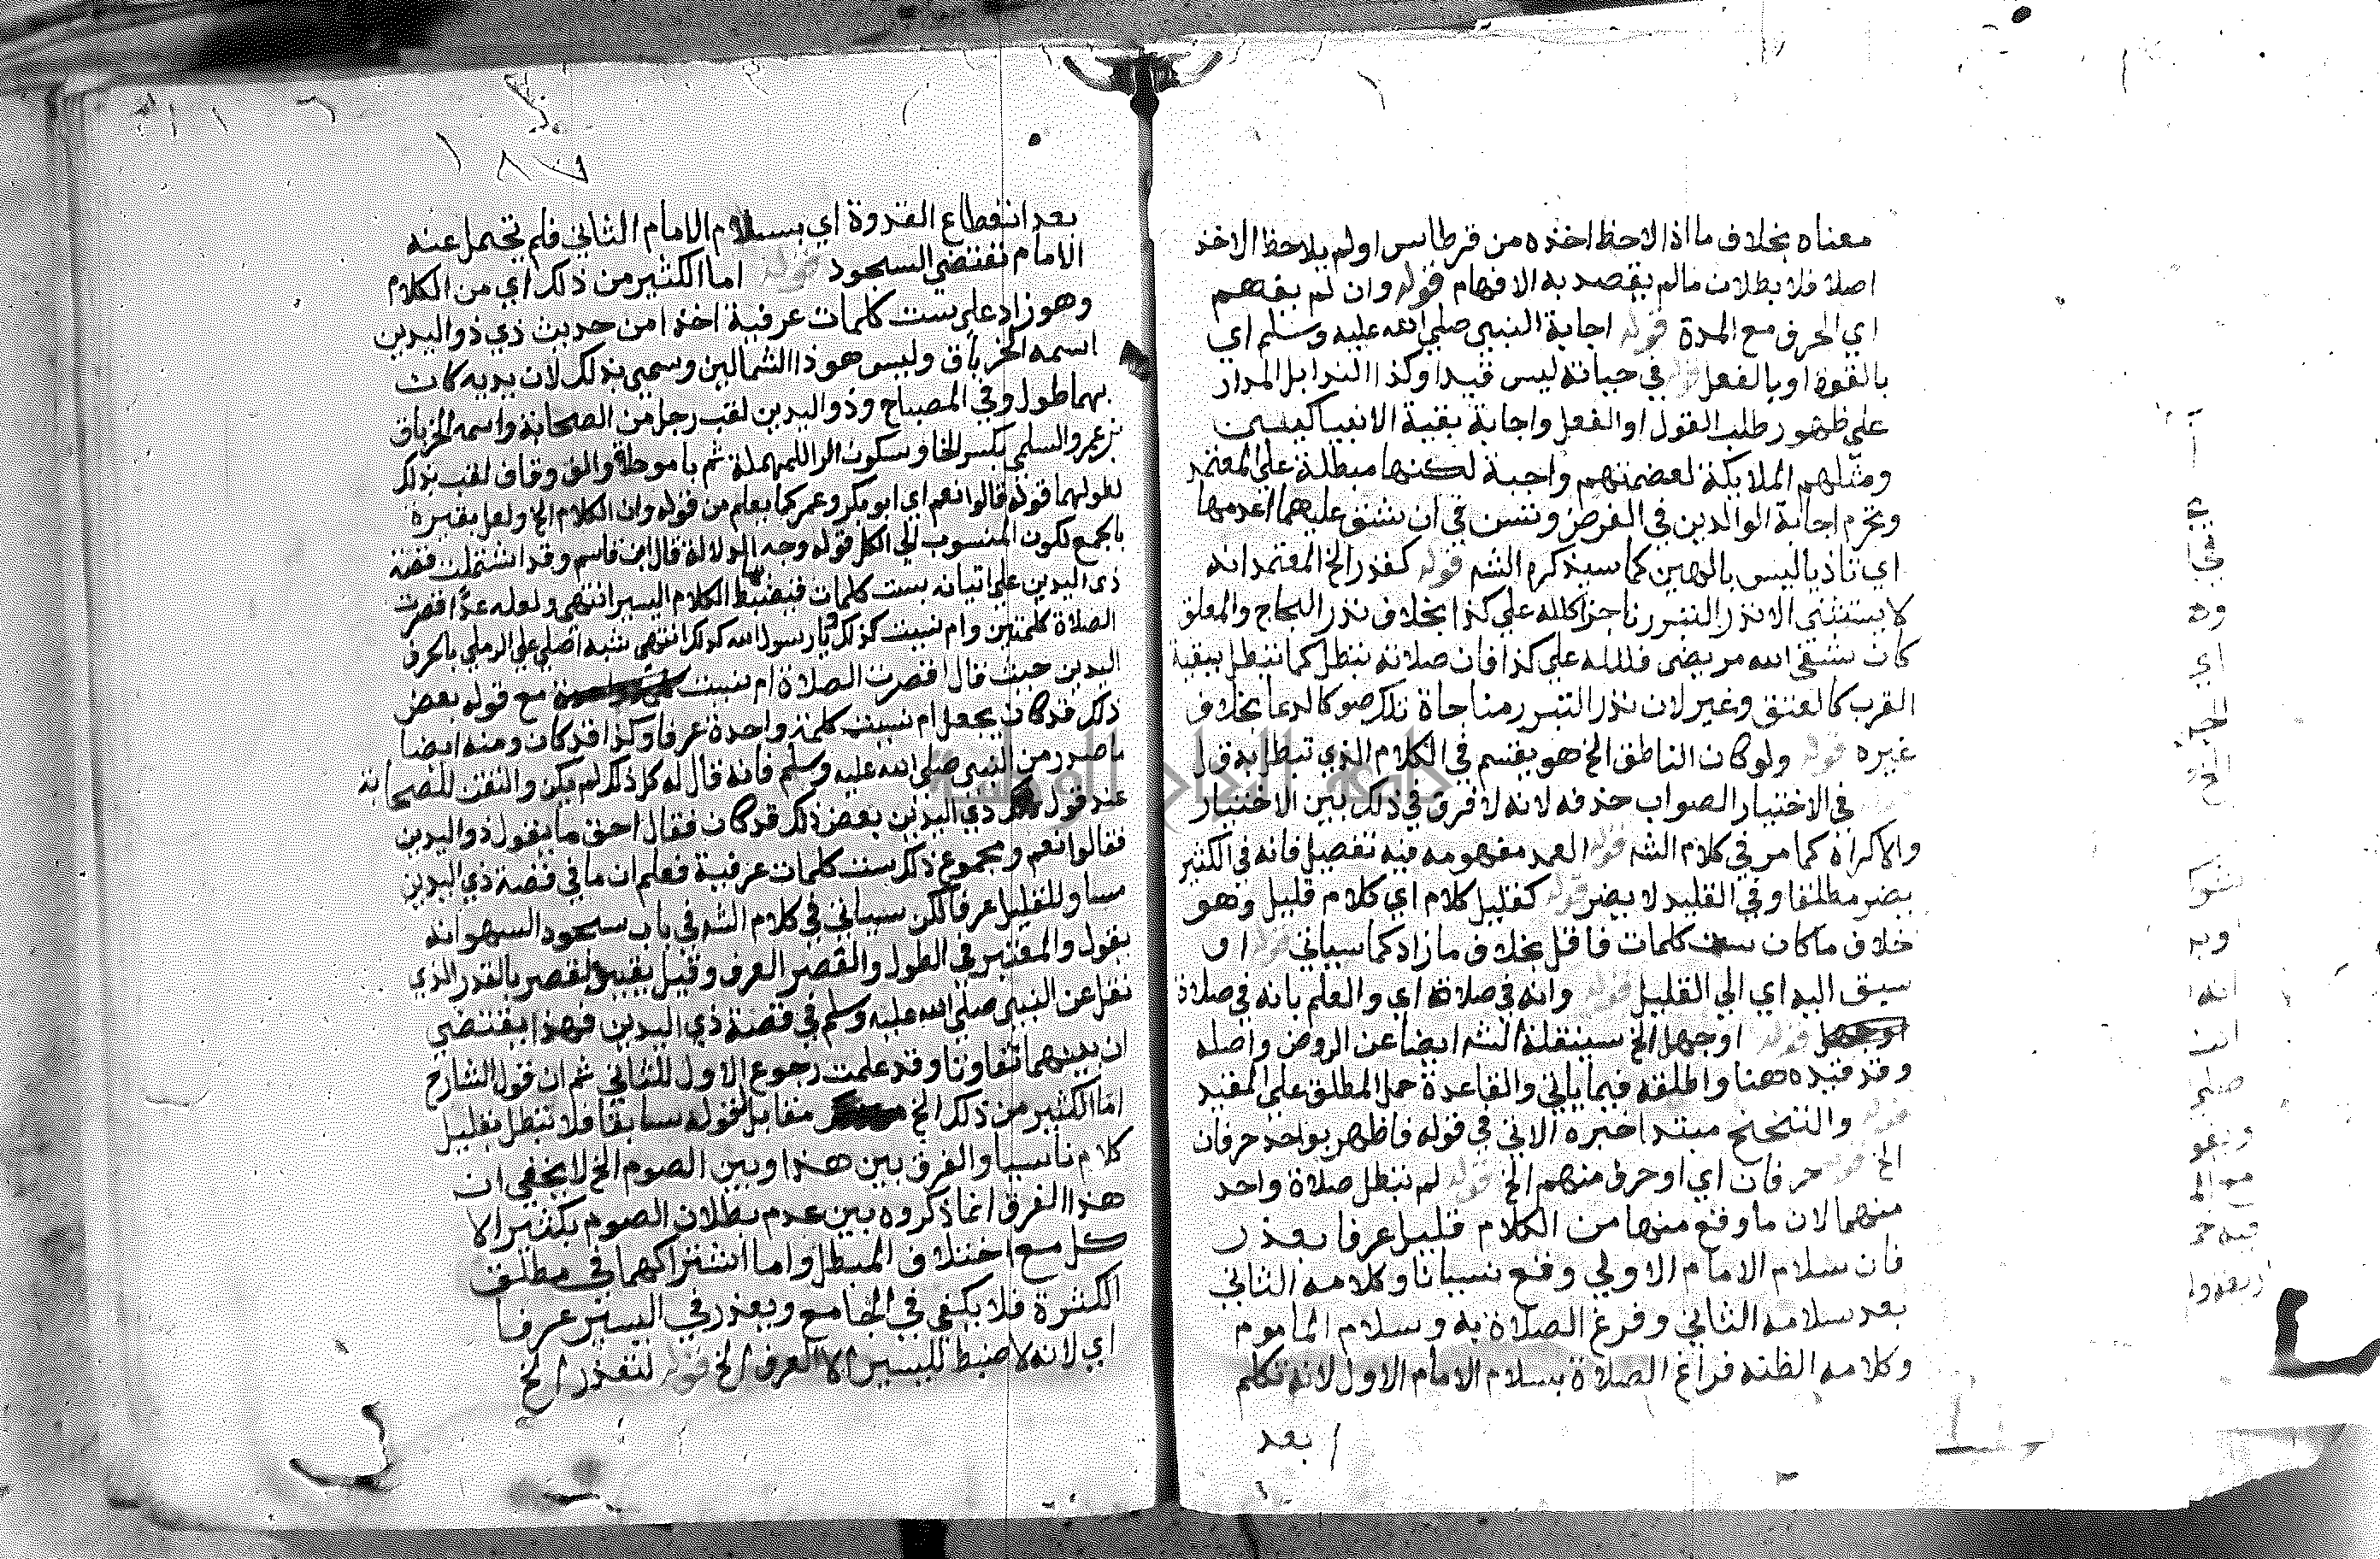 معناه بخلاف ما اذا لاحظ اخذه من قرطاس او لم يلاحظ الاخذ
اصلا فلا بطلان مالم يقصد به الافهام قوله وان لم يفهم
اي الحرف مع المدة قوله اجابة النبي صلي الله عليه وسلم اي
بالقوة او بالفعل في حياته ليس قيدا وكذا الندا بل المدار
علي ظهور طلب القول او الفعل واجابة بقية الانبيا كعيسي
ومثلهم الملايكة لعصمتهم واجبة لكنها مبطلة علي المعتمد
وتحرم اجابة الوالدين في الفرض وتسن في ان شق عليهما عدمها
اي تاذيا ليس بالهين كما سيذكره الشه قوله كنذر الخ المعتمد انه
لا يستثني الا نذر التبرر ناجزا كلله علي كذا بخلاف نذر اللجاج والمعلق
كان شفي الله مريضي فلله علي كذا فان صلاته تبطل كما تبطل ببقية
القرب كالعتق وغير لان نذر التبرر مناجاة تلك صو كالدعا بخلاف
غيره قوله ولو كان الناطق الخ هو يقسم في الكلام الذي تبطل به قول
في الاختيار الصواب حذفه لانه لا فرق في ذلك بين الاختيار
والاكراه كما مر في كلام الشه قوله العمد مفهومه فيه تفصيل فانه في الكثير
يضر مطلقا وفي القليد لا يضر قوله كقليل كلام اي كلام قليل وهو
خلاف ما كان ست كلمات فاقل بخلاف مازاد كما سياتي قوله او
سبق اليه اي الي القليل قوله وانه في صلاة اي والعلم بانه في صلاة
قوله او جهل الخ سينقلة الشه ايضا عن الروض واصله
وقد قيده هنا واطلقه فيما ياتي والقاعدة حمل المطلق علي المقيد
قوله والتنحنح مبتدا خبره الاتي في قوله فاظهر بواحد حرفان
الخ قوله حرفان اي او حرف منهم الخ قوله لم تبطل صلاة واحد
منهما لان ما وقع منها من الكلام قليل عرفا بعذر
فان سلام الامام الاولي وقع نسيانا وكلامه الثاني
بعد سلامه الثاني وفرغ الصلاة به وسلام الماموم
وكلامه الظنه فراغ الصلاة بسلام الامام الاول لانه تكلم
بعد
بعد انقطاع القدوة اي بسلام الامام الثاني فلم تحمل عنه
الامام تقتضي السجود قوله اما الكثير من ذلك اي من الكلام
وهو زاد علي ست كلمات عرفية اخذا من حديث ذي ذو اليدين
اسمه الخرباق وليس هو ذا الشمالين وسمي بذلك لان يديه كان
بهما طول وفي المصباح وذو اليدين لقب رجل من الصحابة واسمه الخرباق
بن عمرو السلمي بكسر الخا وسكون الرا المهملة ثم با موحدة والف وقاف لقب بذلك
لطولهما قوله قالوا نعم اي ابو بكر وعمر كما يعلم من قوله وان الكلام الخ ولعل تعبيره
بالجمع لكون المنسوب الي الكل قوله وجه الدلالة قال ابن قاسم وقد اشتملت قصة
ذي اليدين علي اتيانه بست كلمات فيضبط بها الكلام اليسير انتهي ولعله عدا قصرت
الصلاة كلمتين وام نسيت كذلك ويا رسول الله كذلك انتهي
اليدين حيث قال اقصرت الصلاة ام نسيت مع قوله بعض
ذلك قد كان بجعل ام نسيت كلمة واحدة عرفا وكذا قد كان ومنه ايضا
ما صدر من النبي صلي الله عليه وسلم فانه قال له كل ذلك لم يكن والتفت للصحابة
عند قول ذي اليدين بعض ذلك قد كان فقال احق ما يقول ذو اليدين
فقالوا نعم ومجموع ذلك ست كلمات عرفية فعلم ان ما في قصة ذي اليدين
مساو للقليل عرفا لكن سياتي في كلام الشه في باب سجود السهو انه
يقول والمعتبر في الطول والقصر العرف وقيل يعتبر القصر بالقدر الذي
نقل عن النبي صلي الله عليه وسلم في قصة ذي اليدين فهذا يقتضي
ان بينهما تفاوتا وقد علمت رجوع الاول للثاني ثم ان قول الشارح
اما الكثير من ذلك الخ مقابل لقوله سابقا فلا تبطل بقليل
كلام ناسيا والفرق بين هذا وبين الصوم الخ لا يخفي ان
هذا الفرق انما ذكروه بين عدم بطلان الصوم بكثير الا
كل مع اختلاف المبطل واما اشتراكهما في مطلق
الكثرة فلا يكفي في الجامع ويعذر في اليسير عرفا
اي لانه لا ضبط لليسير الا العرف الخ قوله لتعذر الخ